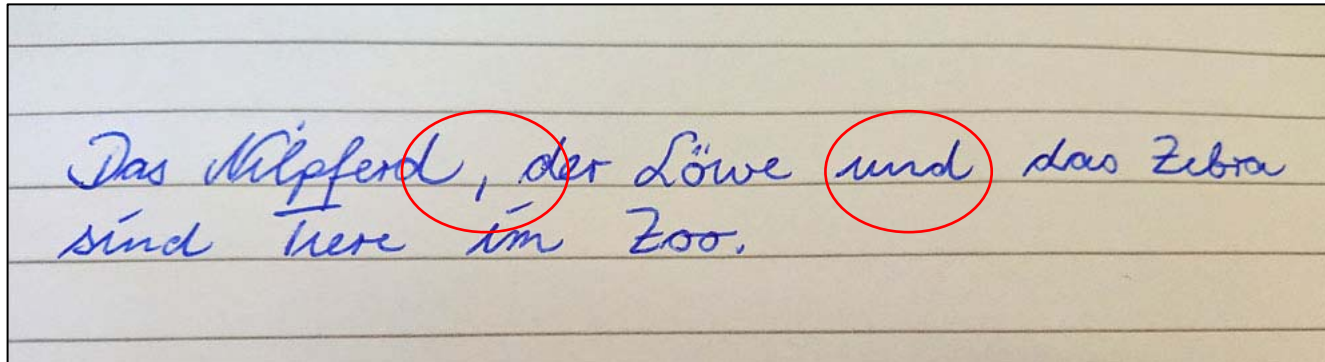 Das Nilpferd, der Löwe und das Zebra
sind Tiere im Zoo.